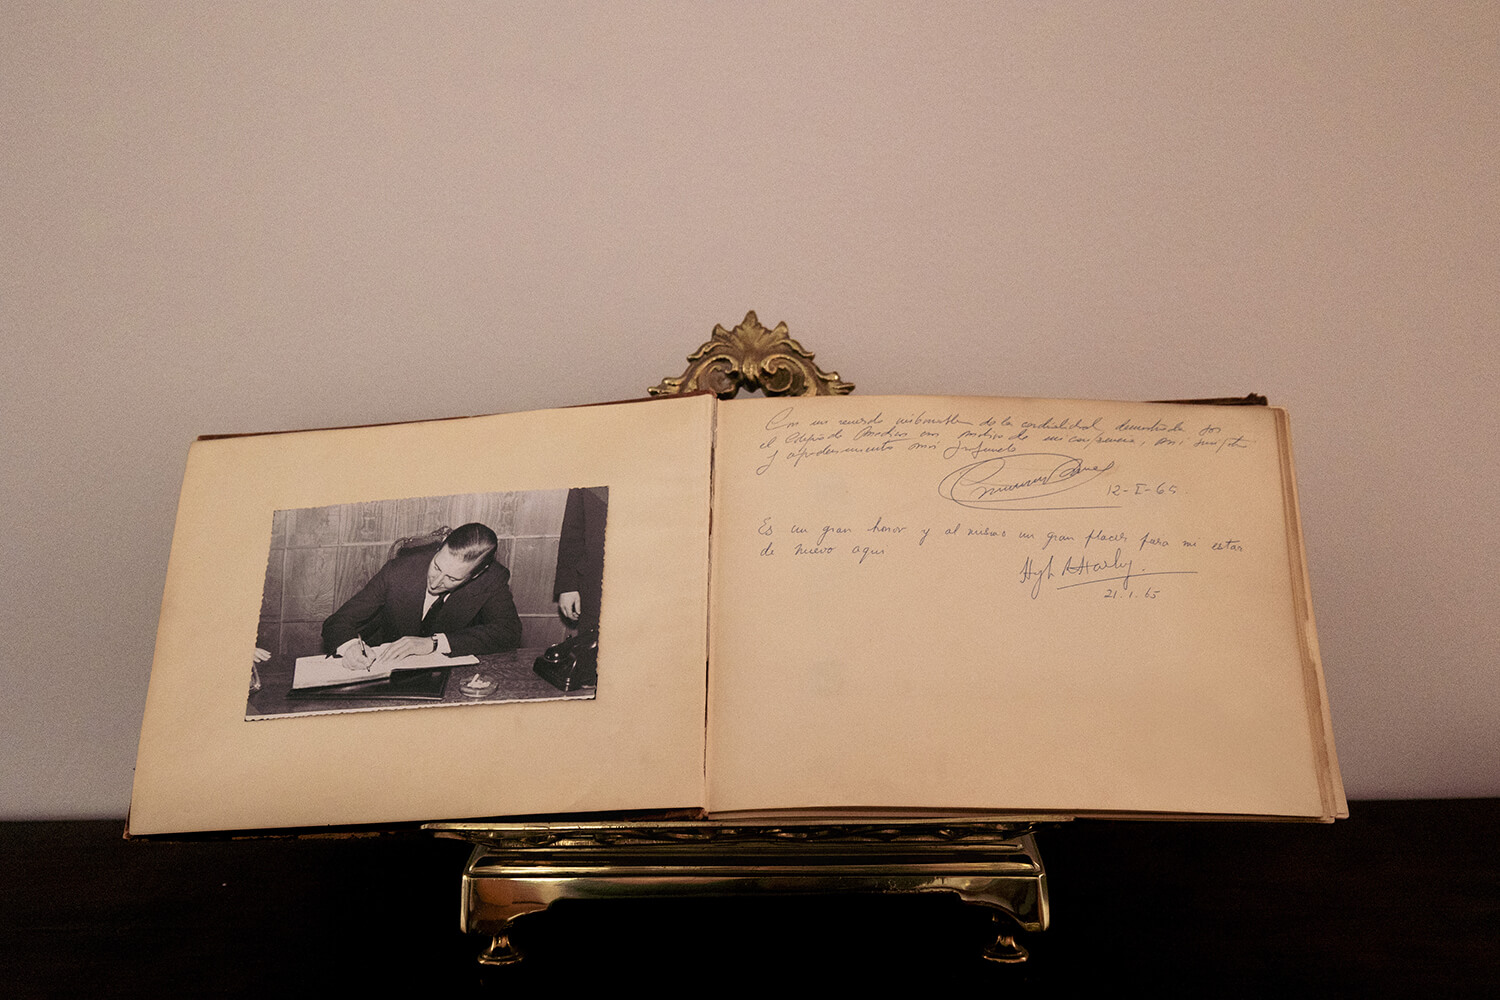 Con un recuerdo imborrable de la cordialidad demostrada por
el Colegio de Médicos con motivo de mi conferencia, mi
y agradecimiento más profundo
12-I-65
Es un gran honor y al mismo un gran placer para mi estar
de nuevo aqui
21.1.65